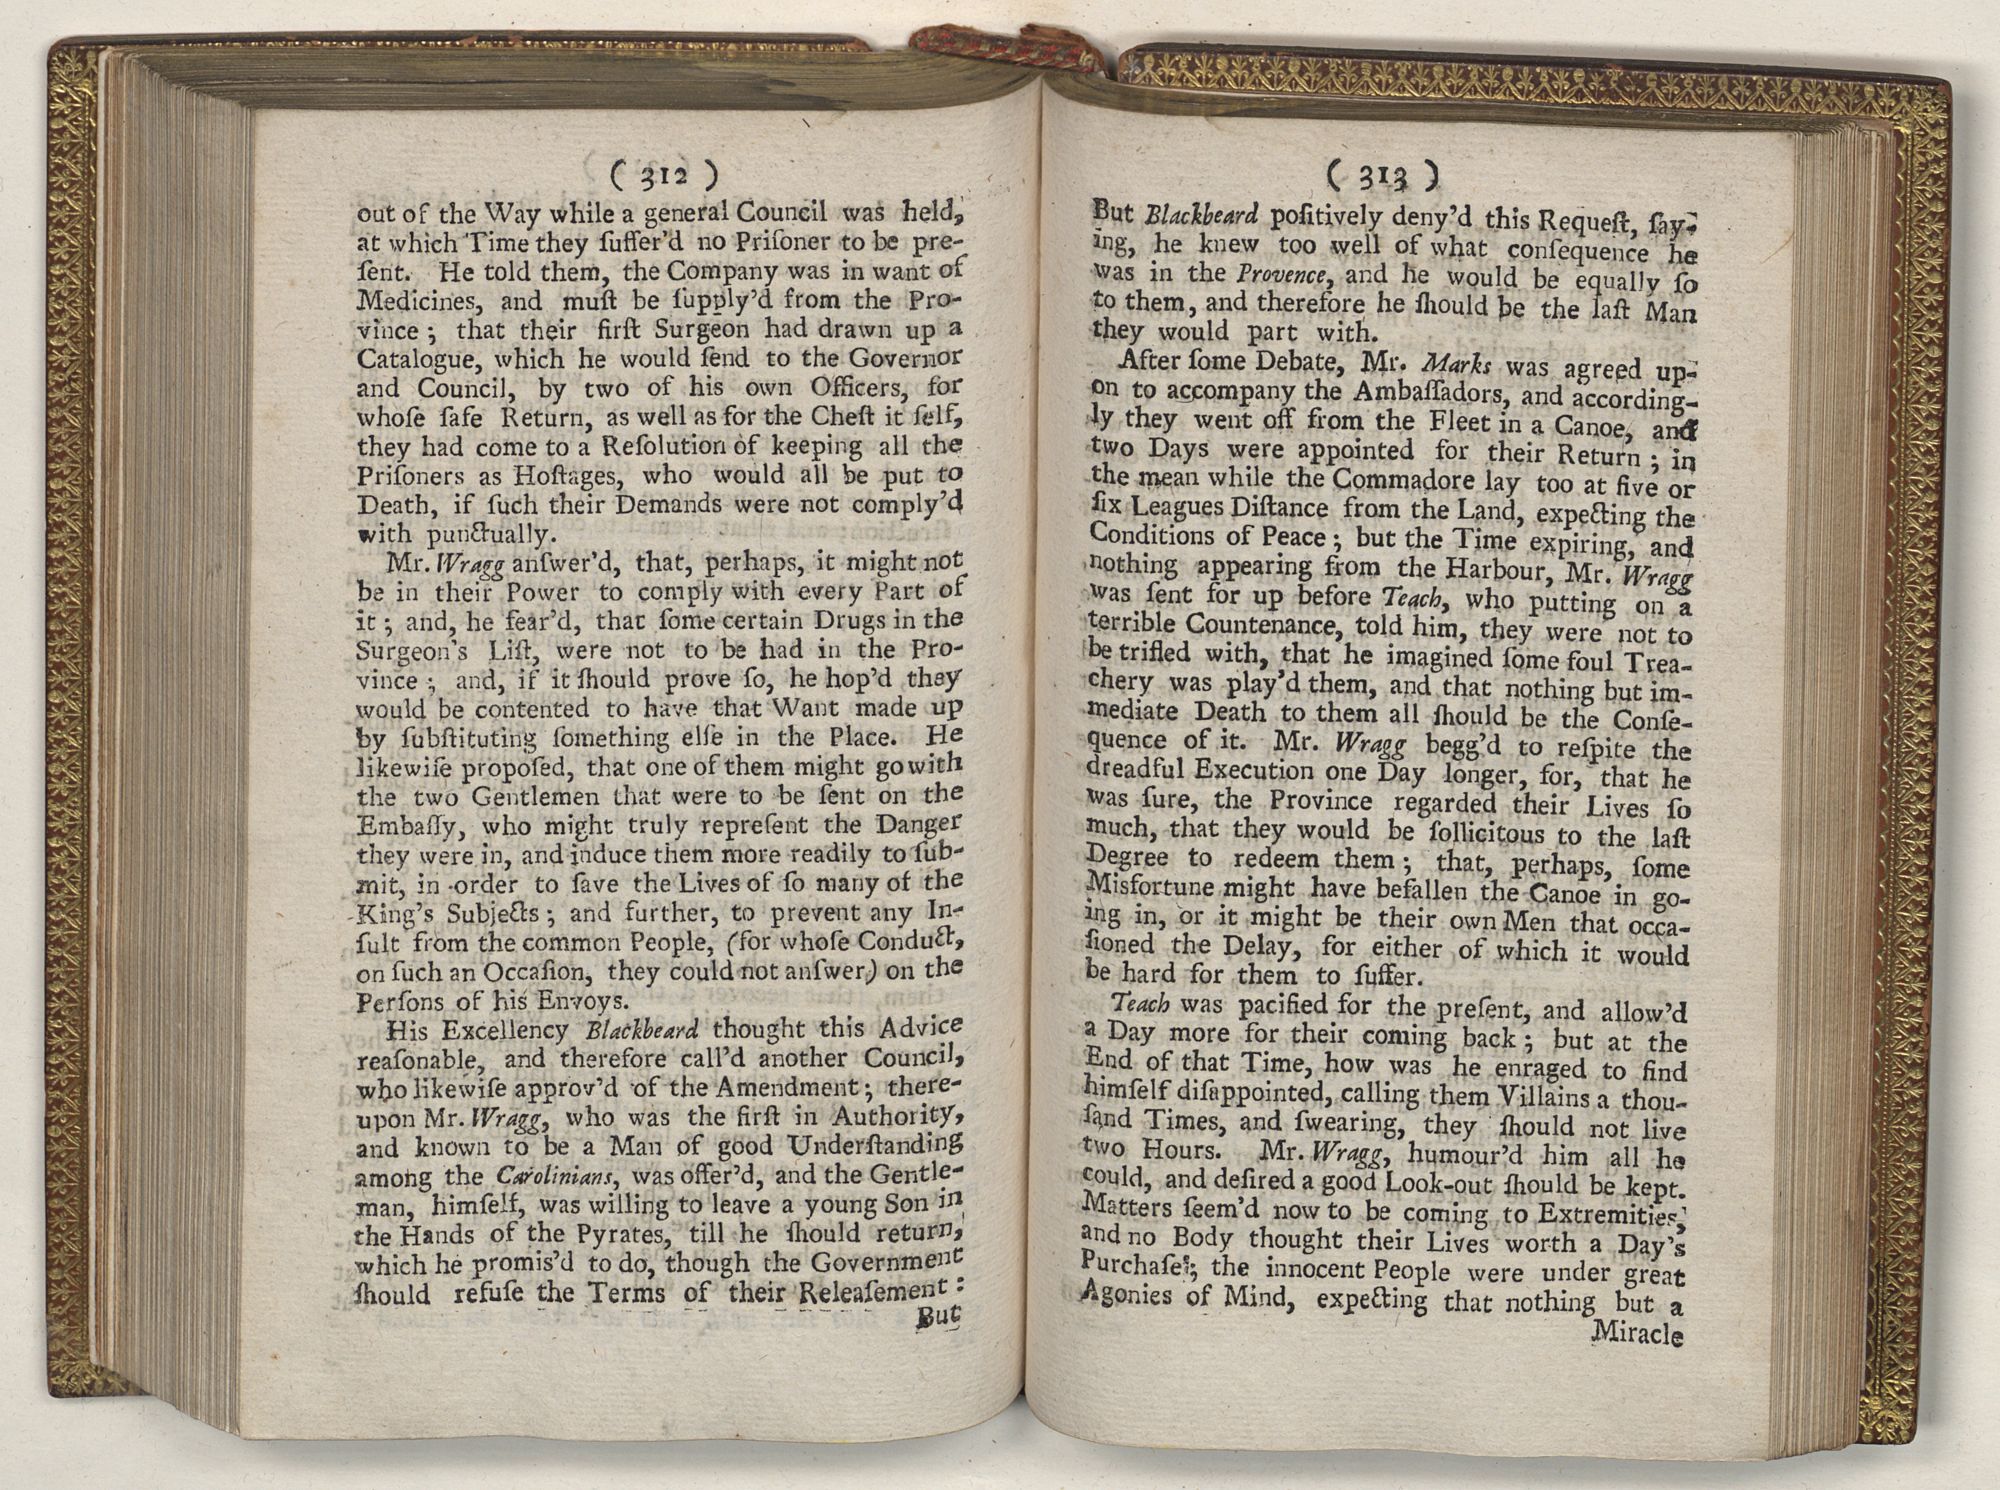 ( 312 )
out of the Way while a general Council was held,
at which Time they ſuffer'd no Priſoner to be pre-
ſent. He told them, the Company was in want of
Medicines, and muſt be ſupply'd from the Pro-
vince ; that their firſt Surgeon had drawn up a
Catalogue, which he would ſend to the Governor
and Council, by two of his own Officers, for
whoſe ſafe Return, as well as for the Cheſt it ſelf,
they had come to a Reſolution of keeping all the
Priſoners as Hoſtages, who would all be put to
Death, if ſuch their Demands were not comply'd
with punctually.
Mr. Wragg anſwer'd, that, perhaps, it might not
be in their Power to comply with every Part of
it ; and, he fear'd, that ſome certain Drugs in the
Surgeon's Liſt, were not to be had in the Pro-
vince ; and, if it ſhould prove ſo, he hop'd they
would be contented to have that Want made up
by ſubſtituting ſomething elſe in the Place. He
likewiſe propoſed, that one of them might go with
the two Gentlemen that were to be ſent on the
Embaſſy, who might truly repreſent the Danger
they were in, and induce them more readily to ſub-
mit, in order to ſave the Lives of ſo many of the
King's Subjects ; and further, to prevent any In-
ſult from the common People, (for whoſe Conduct,
on ſuch an Occaſion, they could not anſwer) on the
Perſons of his Envoys.
His Excellency Blackbeard thought this Advice
reaſonable, and therefore call'd another Council,
who likewiſe approv'd of the Amendment ; there-
upon Mr. Wragg, who was the firſt in Authority,
and known to be a Man of good Underſtanding
among the Carolinians, was offer'd, and the Gentle-
man, himſelf, was willing to leave a young Son in
the Hands of the Pyrates, till he ſhould return,
which he promis'd to do, though the Government
ſhould refuſe the Terms of their Releaſement :
But
( 313 )
But Blackbeard poſitively deny'd this Requeſt, ſay-
ing, he knew too well of what conſequence he
was in the Provence, and he would be equally ſo
to them, and therefore he ſhould be the laſt Man
they would part with.
After ſome Debate, Mr. Marks was agreed up-
on to accompany the Ambaſſadors, and according-
ly they went off from the Fleet in a Canoe, and
two Days were appointed for their Return ; in
the mean while the Commadore lay too at five or
ſix Leagues Diſtance from the Land, expecting the
Conditions of Peace ; but the Time expiring, and
nothing appearing from the Harbour, Mr. Wragg
was ſent for up before Teach, who putting on a
terrible Countenance, told him, they were not to
be trifled with, that he imagined ſome foul Trea-
chery was play'd them, and that nothing but im-
mediate Death to them all ſhould be the Conſe-
quence of it. Mr. Wragg begg'd to reſpite the
dreadful Execution one Day longer, for, that he
was ſure, the Province regarded their Lives ſo
much, that they would be ſollicitous to the laſt
Degree to redeem them ; that, perhaps, ſome
Misfortune might have befallen the Canoe in go-
ing in, or it might be their own Men that occa-
ſioned the Delay, for either of which it would
be hard for them to ſuffer.
Teach was pacified for the preſent, and allow'd
a Day more for their coming back ; but at the
End of that Time, how was he enraged to find
himſelf diſappointed, calling them Villains a thou-
ſand Times, and ſwearing, they ſhould not live
two Hours. Mr. Wragg, humour'd him all he
could, and deſired a good Look-out ſhould be kept.
Matters ſeem'd now to be coming to Extremities,
and no Body thought their Lives worth a Day's
Purchaſe ; the innocent People were under great
Agonies of Mind, expecting that nothing but a
Miracle